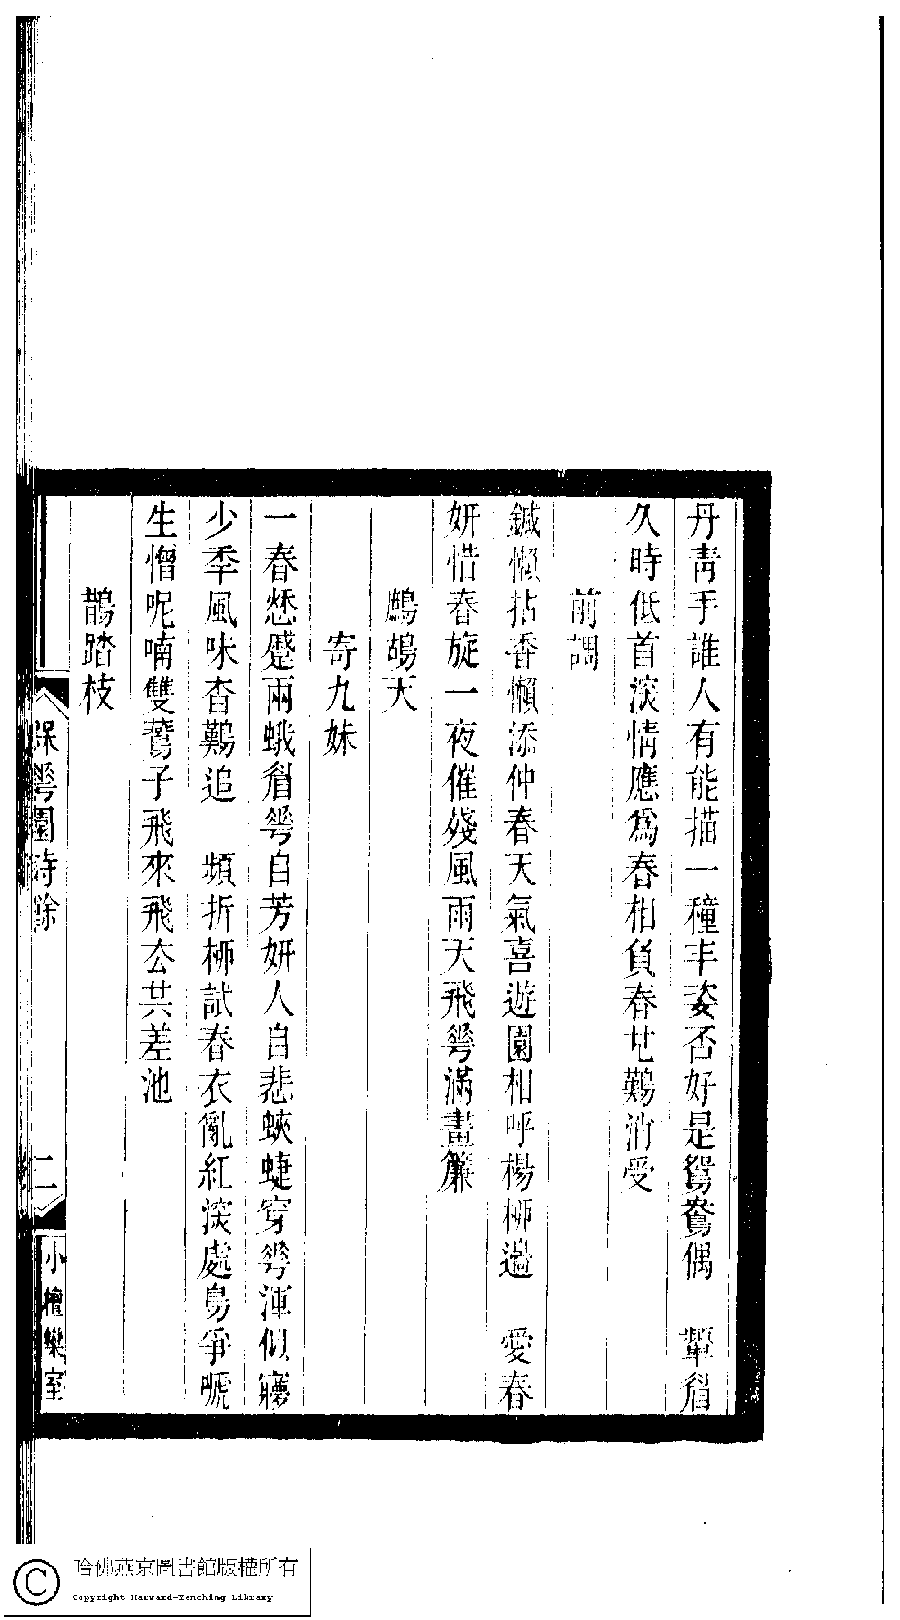 丹靑手誰人有能描一種丰姿否好是鴛鴦偶　顰眉
久時低首淚情應爲春相負春世難消受
前調
鍼懶拈香懶添仲春天氣喜遊園相呼楊柳邊　愛春
妍惜春旋一夜催殘風雨天飛蕐滿畫簾
鷓鴣天
寄九妹
一春愁蹙兩蛾眉蕐自芳妍人自悲蛺蜨穿蕐渾似寱
少季風味杳難追　頻折桺試春衣亂紅淡處鳥爭嗁
生憎呢喃雙鷰子飛來飛厺共差池
鵲踏枝
蕐園詩餘
二
小檀欒室
哈佛燕京圖書館版權所有
Copyright Harvard-Yenching Library